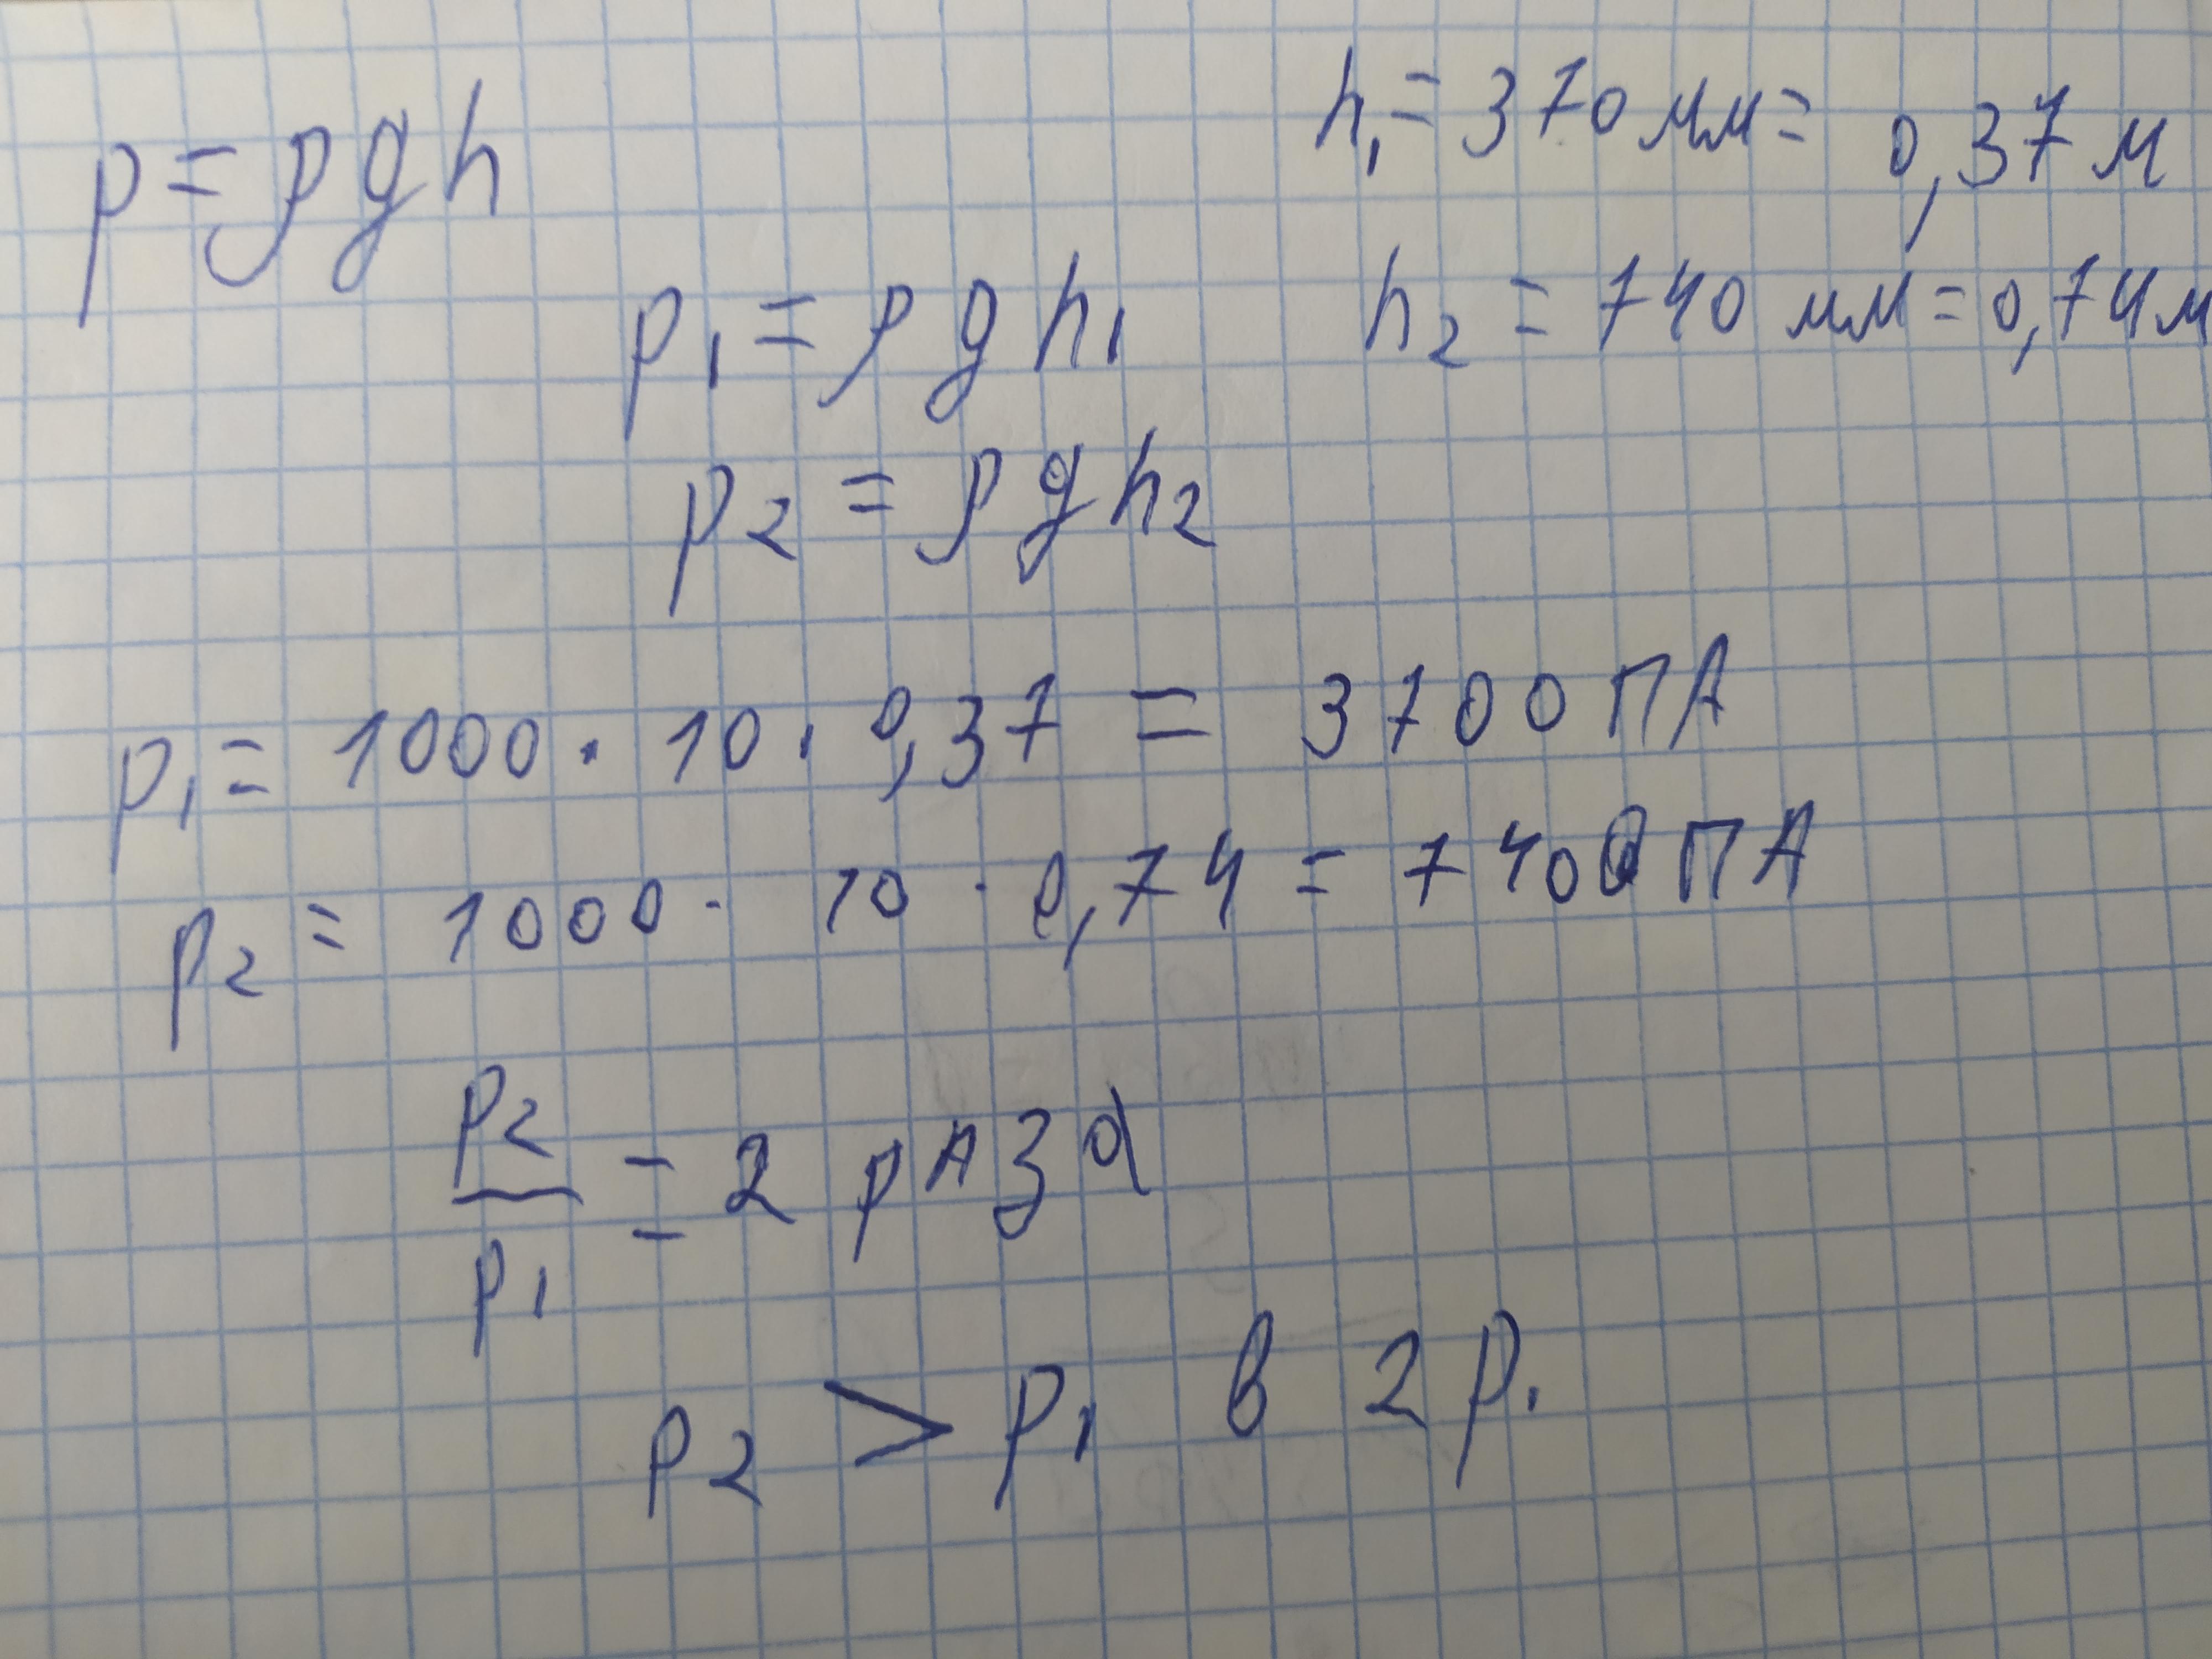 p = ρgh
h₁ = 370 мм = 0,37 м
p₁ = ρgh₁
h₂ = 740 мм = 0,74 м
p₂ = ρgh₂
p₁ = 1000 · 10 · 0,37 = 3700 ПА
p₂ = 1000 · 10 · 0,74 = 7400 ПА
p₂/p₁ = 2 рАЗа
p₂ > p₁ в 2 р.